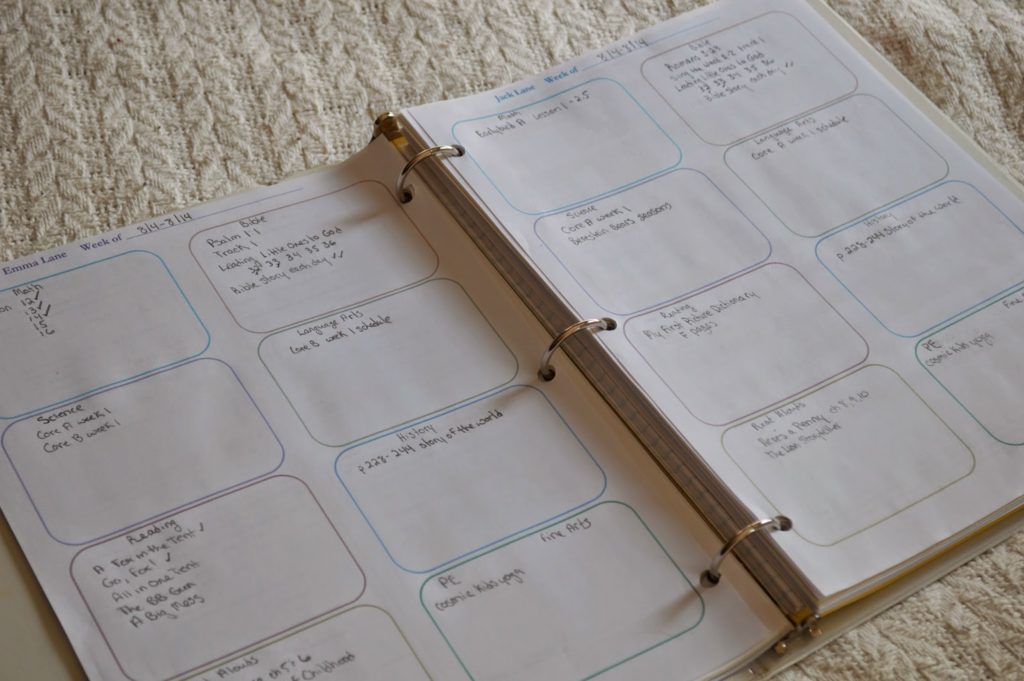 Emma Lane Week of 8/4-8/14
Math
Bible
Psalm 1:1
Track 1
Leading Little Ones to God
32 33 34 35 36
Bible story each day ✓✓
Language Arts
Core B week 1 schedule
Science
Core A week 1
Core B week 1
History
p 228-244 Story of the world
Reading
A Fox in the Tent ✓
Go, Fox! ✓
All in One Tent
The BB Gun
A Big Mess
PE
cosmic kids yoga
Fine Arts
Alouds
ch 5+6
of Childhood
Jack Lane Week of 8/4-8/14
Math
Earlybird A Lesson 1-25
Bible
Leading Little Ones to God
33 34 35 36
Bible story each day ✓✓
Language Arts
Core A week 1 schedule
Science
Core A week 1
Berestein Bears seasons
History
p 228-244 Story of the world
Reading
My First Picture Dictionary
F pages
PE
cosmic kids yoga
Fine
Read Alouds
ch 8, 9, 10
The Last Storyteller